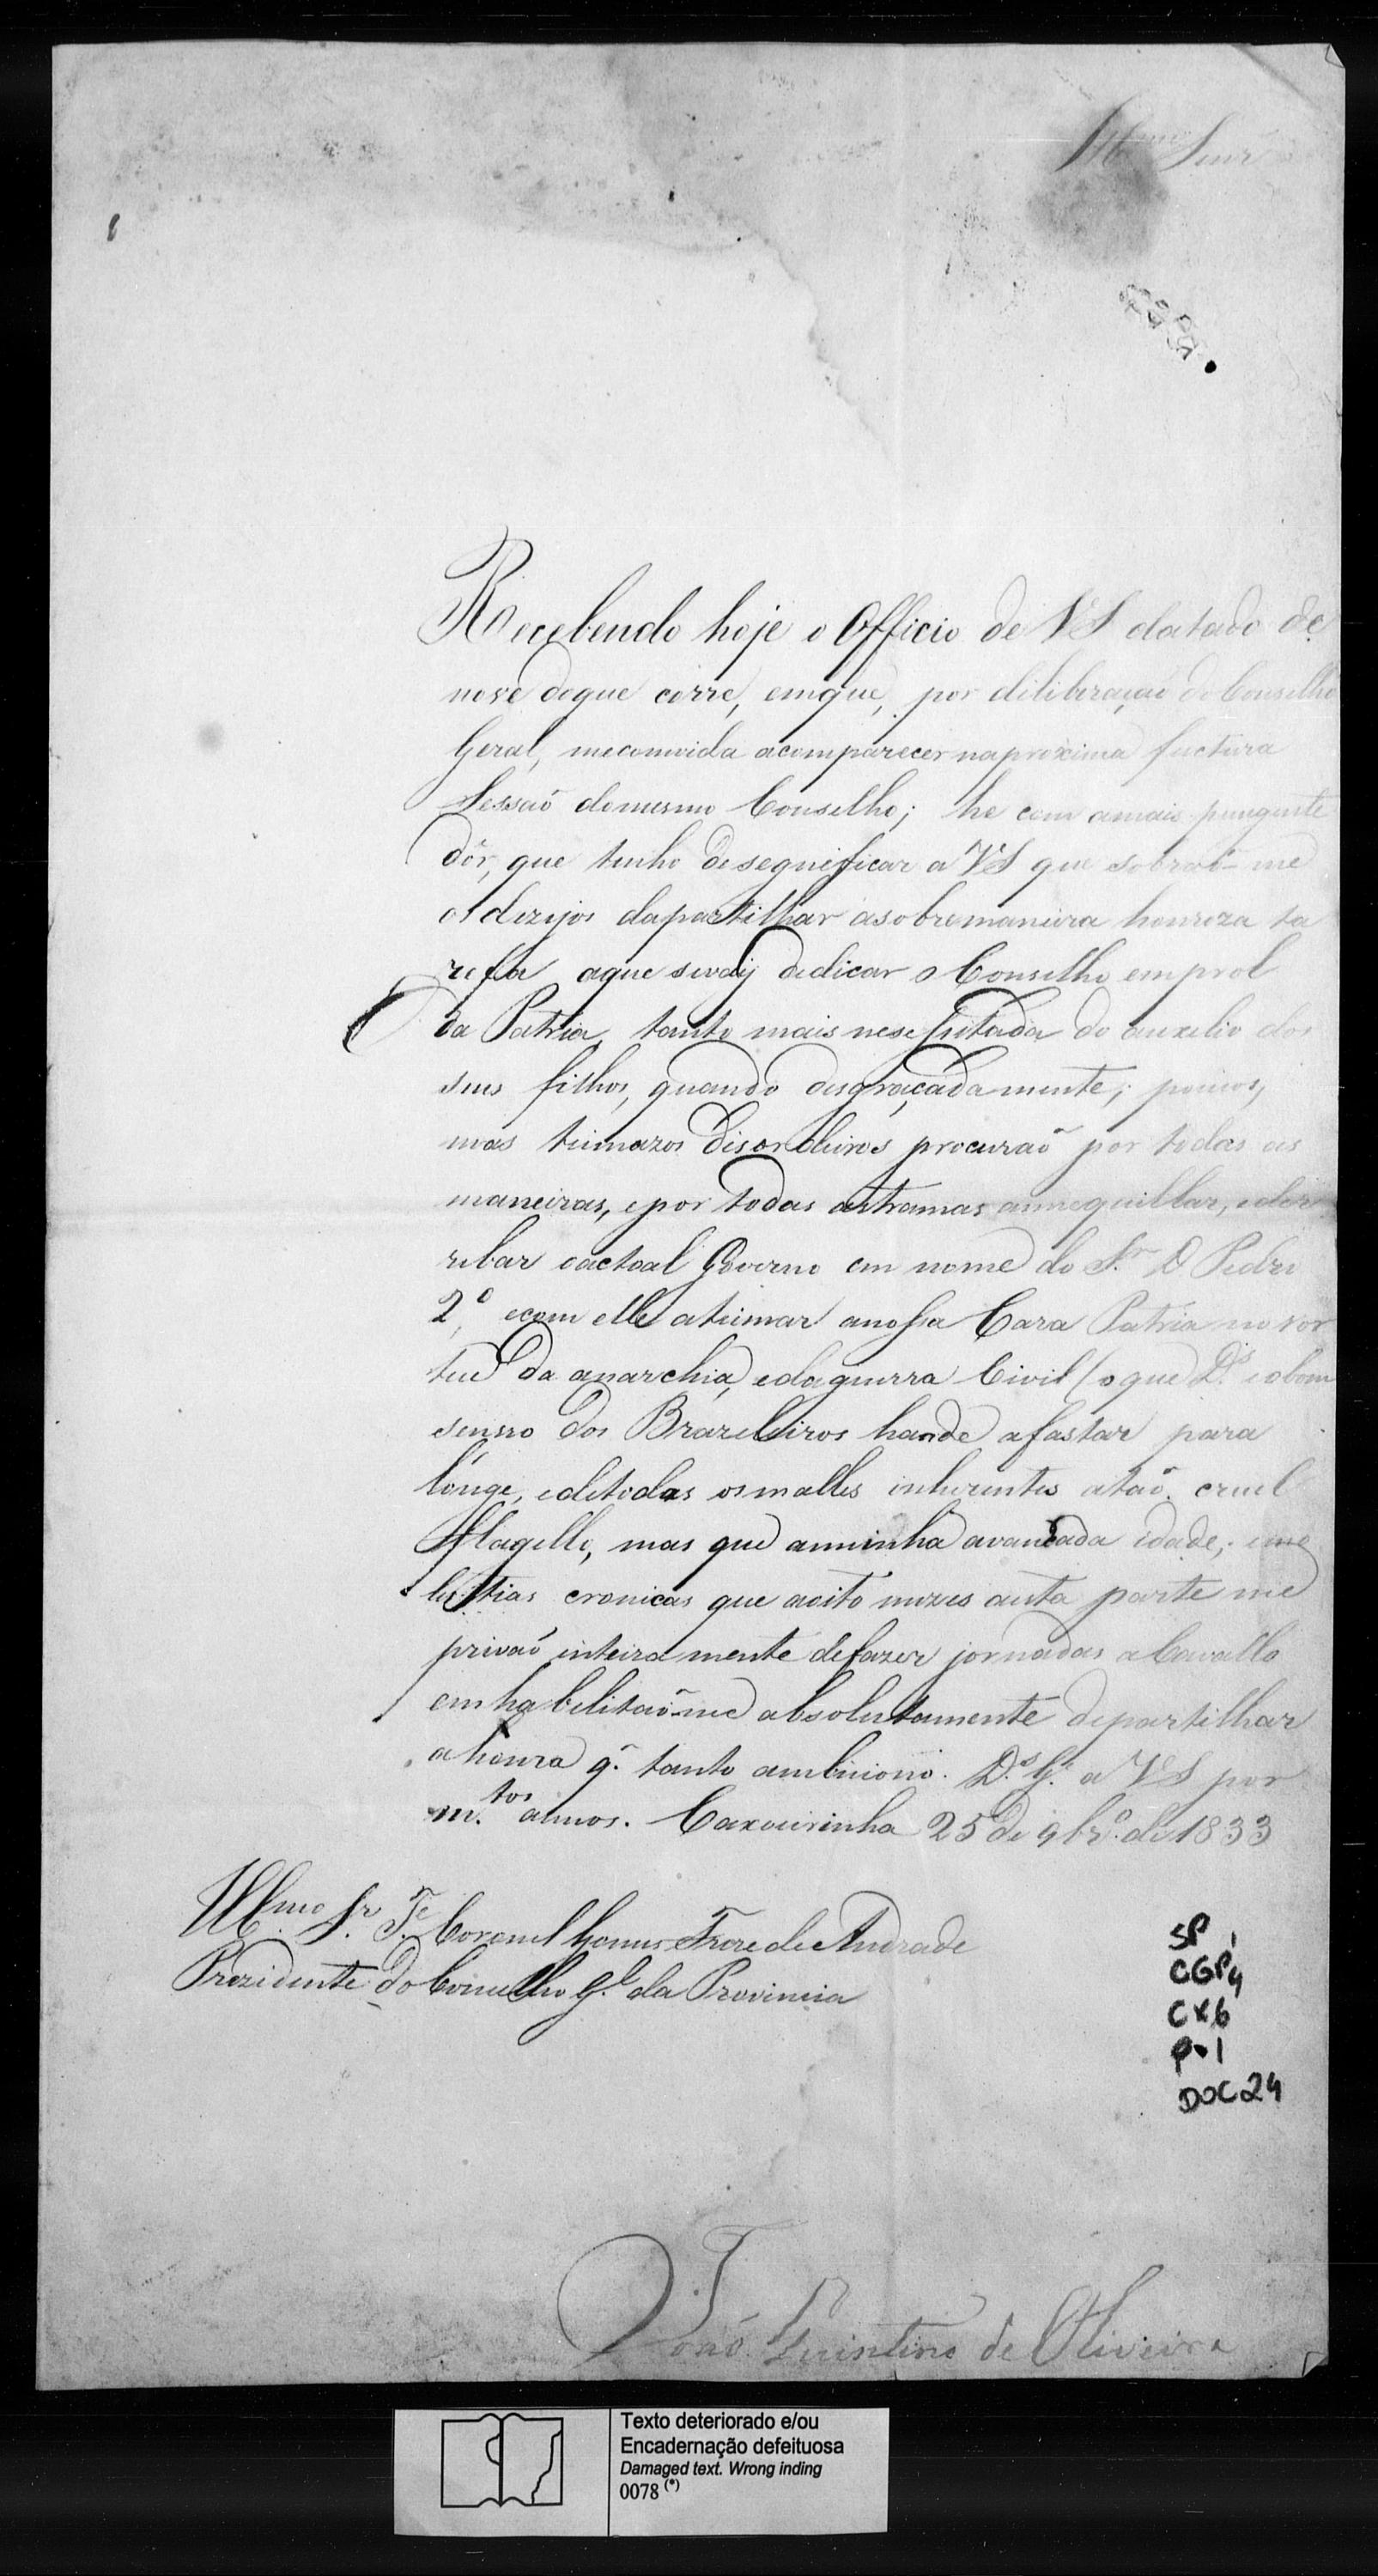 Illmo Senr
Recebendo hoje o Officio de VS datado de
nove deque corre, emque, por diliberação do Conselho
Geral, meconvida acomparecer naproxima fuctura
Sessão domesmo Conselho; he com amais pungente
dôr, que tenho deseguificar a VS que sobrão-me
os dezejos dapartilhar asobremaneira honroza ta
refa aque sevaij dedicar o Conselho emprol
da Patria, tanto mais nesessitada do auxelio dos
seus filhos, quando disgraçadamente, poucos,
mas teimazos disordeiros procurão por todas as
maneiras, epor todas astramas annequillar, eder
ribar oactoal Governo em nome do Sr. D Pedro
2º, ecom elle
anossa Cara Patria no vor
tice da anarchia, edaguerra Civil (o que Ds. eobom
sensso dos Brazileiros hande afastar para
lònge, edetodas osmalles inherentes atão cruel
fflagello, mas que aminha avancada idade, eme
lestias cronicas que aoito mezes aesta parte me
privão inteiramente defazer jornadas aCavallo
emhabelitão-me absolutamente departilhar
ahonra q. tanto ambiciono. Ds. Ge. a VS por
m.tos annos. Caxoeirinha 25 de 9br.º de 1833
Illmo Sr. Te. Coronel Gomes Freire de Andrade
Prezidente do Concelho G.l da Provincia
SP 1
CGP4
CX6
P-1
DOC24
João Quintino de Oliveira
Texto deteriorado e/ou
Encadernação defeituosa
Damaged text. Wrong inding
0078 (*)